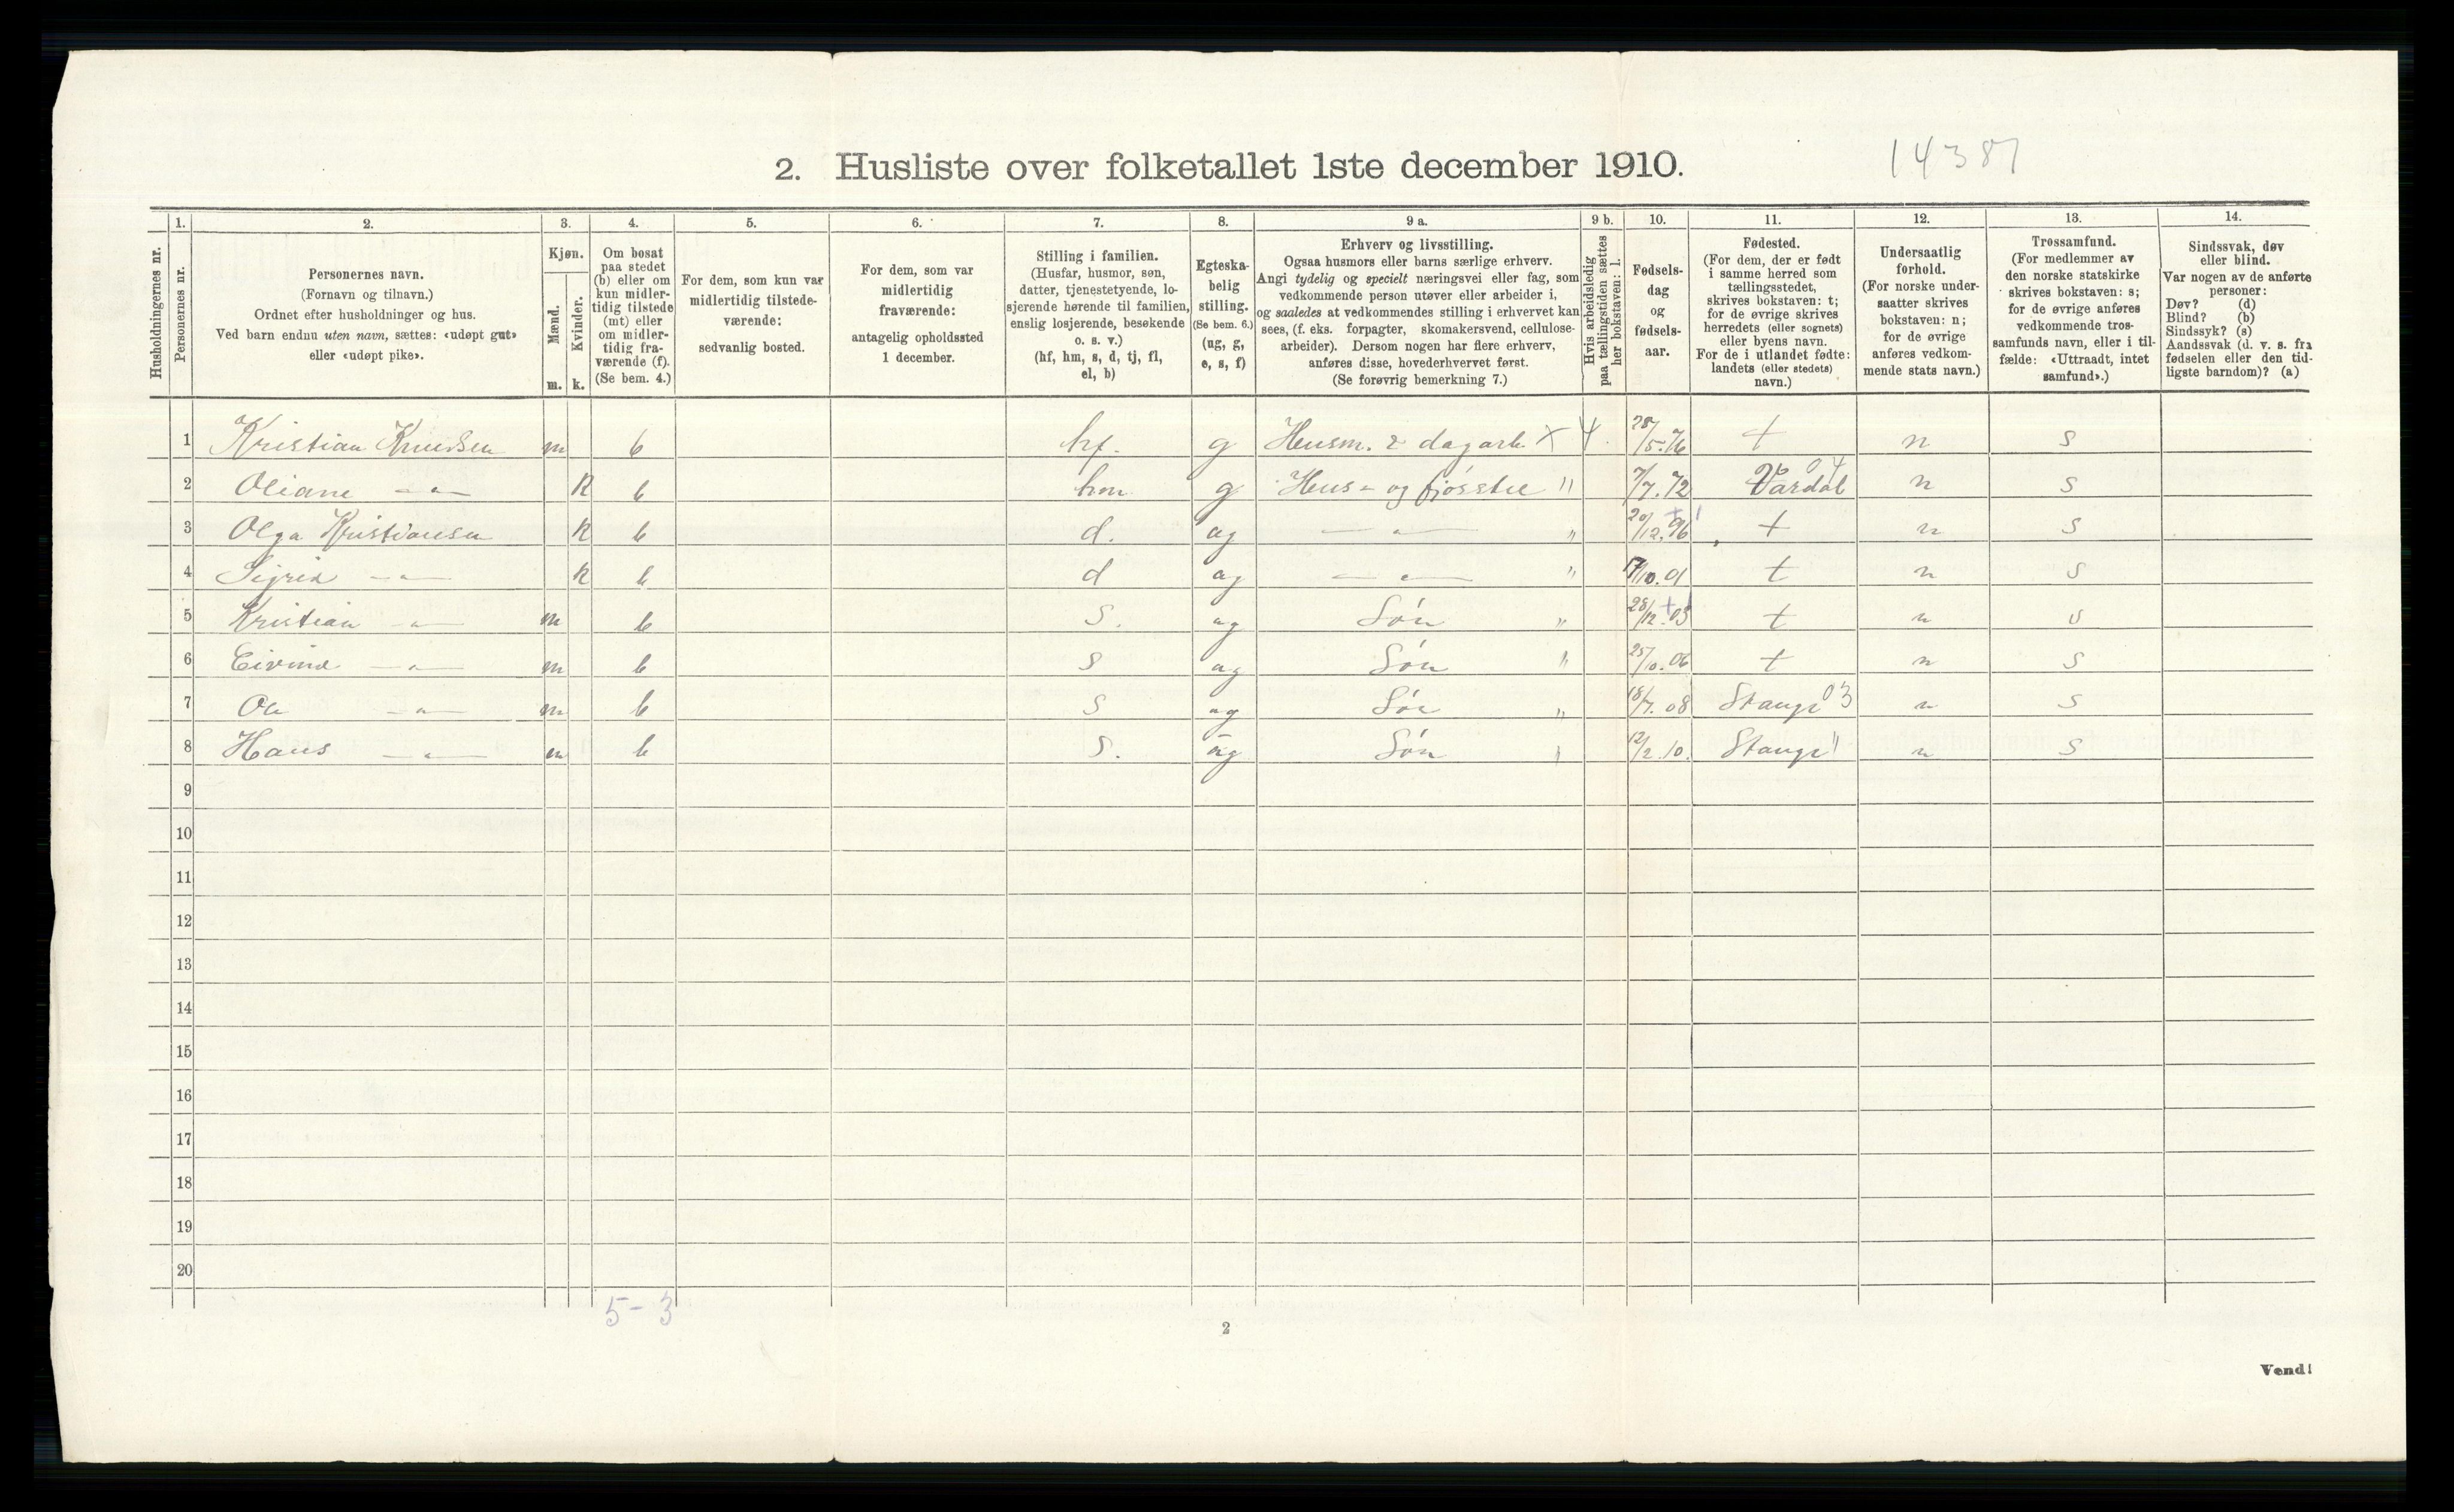 2. Husliste over folketallet 1ste december 1910.
14387
1. 2. 3. 4. 5. 6. 7. 8. 9 a. 9 b. 10. 11. 12. 13. 14.
Husholdningernes nr.
Personernes nr.
Personernes navn.
(Fornavn og tilnavn.)
Ordnet efter husholdninger og hus.
Ved barn endnu uten navn, sættes: «udøpt gut»
eller «udøpt pike».
Kjøn.
Mænd.
m.
Kvinder.
k.
Om bosat
paa stedet
(b) eller om
kun midler-
tidig tilstede
(mt) eller
om midler-
tidig fra-
værende (f).
(Se bem. 4.)
For dem, som kun var
midlertidig tilstede-
værende:
sedvanlig bosted.
For dem, som var
midlertidig
fraværende:
antagelig opholdssted
1 december.
Stilling i familien.
(Husfar, husmor, søn,
datter, tjenestetyende, lo-
sjerende hørende til familien,
enslig losjerende, besøkende
o. s. v.)
(hf, hm, s, d, tj, fl,
el, b)
Egteska-
belig
stilling.
(Se bem. 6.)
(ug, g,
e, s, f)
Erhverv og livsstilling.
Ogsaa husmors eller barns særlige erhverv.
Angi tydelig og specielt næringsvei eller fag, som
vedkommende person utøver eller arbeider i,
og saaledes at vedkommendes stilling i erhvervet kan
sees, (f. eks. forpagter, skomakersvend, cellulose-
arbeider). Dersom nogen har flere erhverv,
anføres disse, hovederhvervet først.
(Se forøvrig bemerkning 7.)
Hvis arbeidsledig
paa tællingstiden sættes
her bokstaven: l.
Fødsels-
dag
og
fødsels-
aar.
Fødested.
(For dem, der er født
i samme herred som
tællingsstedet,
skrives bokstaven: t;
for de øvrige skrives
herredets (eller sognets)
eller byens navn.
For de i utlandet fødte:
landets (eller stedets)
navn.)
Undersaatlig
forhold.
(For norske under-
saatter skrives
bokstaven: n;
for de øvrige
anføres vedkom-
mende stats navn.)
Trossamfund.
(For medlemmer av
den norske statskirke
skrives bokstaven: s;
for de øvrige anføres
vedkommende tros-
samfunds navn, eller i til-
fælde: «Uttraadt, intet
samfund».)
Sindssvak, døv
eller blind.
Var nogen av de anførte
personer:
Døv? (d)
Blind? (b)
Sindssyk? (s)
Aandssvak (d. v. s. fra
fødselen eller den tid-
ligste barndom)? (a)
1 Kristian Knudsen m b hf. g Husm. & dagarb. X 4. 28/5.76 t n s
2 Oliane —"— k b hm g Hus- og fjósstel " 7/7.72 Vardal 04 n s
3 Olga Kristiansen k b d. ug —"— " 20/12.96 t n s
4 Sigrid —"— k b d ug —"— " 17/10.01 t n s
5 Kristian —"— m b s. ug Són " 28/12.03 t n s
6 Eivind —"— m b s ug Són " 25/10.06 t n s
7 Ole —"— m b s ug Són " 18/7.08 Stange 03 n s
8 Hans —"— m b s. ug Són " 12/2.10. Stange " n s
9
10
11
12
13
14
15
16
17
18
19
20
5-3
2
Vend!